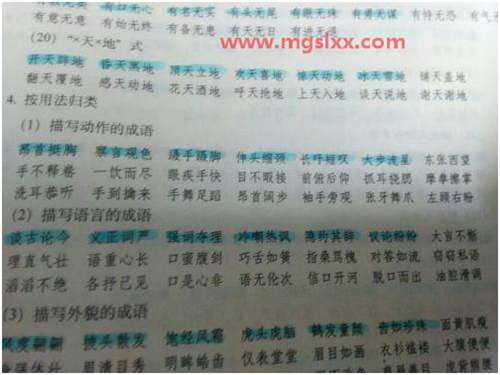 有口无心 有名无实 有头无尾 有眼无珠 有勇无谋 有恃无恐
有意无意 有始无终 有备无患 有天无日 有进无退
www.mgslxx.com
(20) “×天×地” 式
开天辟地 昏天黑地 顶天立地 欢天喜地 惊天动地 冰天雪地 铺天盖地
翻天覆地 感天动地 花天酒地 呼天抢地 上天入地 谈天说地 谢天谢地
4. 按用法归类
(1) 描写动作的成语
昂首挺胸 察言观色 蹑手蹑脚 伸头缩颈 长吁短叹 大步流星 东张西望
手不释卷 一饮而尽 眼疾手快 目不暇接 前俯后仰 抓耳挠腮 摩拳擦掌
洗耳恭听 手到擒来 手舞足蹈 昂首阔步 袖手旁观 张牙舞爪 左顾右盼
(2) 描写语言的成语
谈古论今 义正词严 强词夺理 冷嘲热讽 隐约其辞 议论纷纷 大言不惭
理直气壮 语重心长 口蜜腹剑 巧舌如簧 指桑骂槐 对答如流 窃窃私语
滔滔不绝 各抒己见 口是心非 语无伦次 信口开河 脱口而出 油腔滑调
(3) 描写外貌的成语
风度翩翩 披头散发 饱经风霜 虎头虎脑 鹤发童颜 齿如珍珠 面黄肌瘦
身强体壮 眉清目秀 明眸皓齿 仪表堂堂 眉目如画 衣衫褴褛 大腹便便